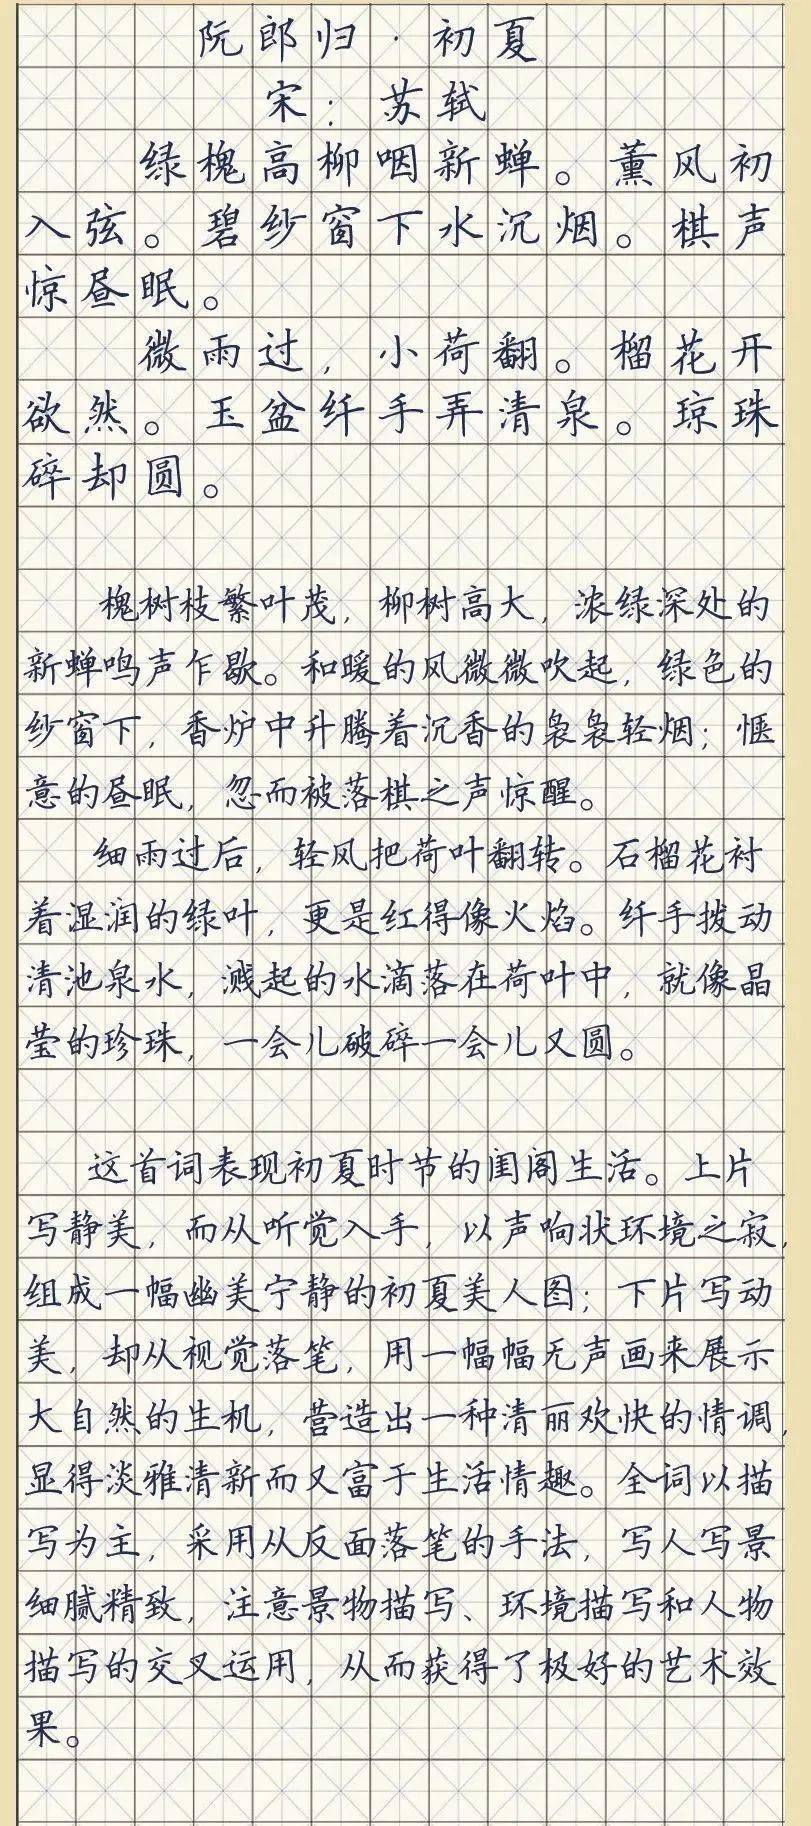 阮郎归·初夏
宋：苏轼
绿槐高柳咽新蝉。薰风初
入弦。碧纱窗下水沉烟。棋声
惊昼眠。
微雨过，小荷翻。榴花开
欲然。玉盆纤手弄清泉。琼珠
碎却圆。
槐树枝繁叶茂，柳树高大，浓绿深处的
新蝉鸣声乍歇。和暖的风微微吹起，绿色的
纱窗下，香炉中升腾着沉香的袅袅轻烟；惬
意的昼眠，忽而被落棋之声惊醒。
细雨过后，轻风把荷叶翻转。石榴花衬
着湿润的绿叶，更是红得像火焰。纤手拨动
清池泉水，溅起的水滴落在荷叶中，就像晶
莹的珍珠，一会儿破碎一会儿又圆。
这首词表现初夏时节的闺阁生活。上片
写静美，而从听觉入手，以声响状环境之寂，
组成一幅幽美宁静的初夏美人图；下片写动
美，却从视觉落笔，用一幅幅无声画来展示
大自然的生机，营造出一种清丽欢快的情调，
显得淡雅清新而又富于生活情趣。全词以描
写为主，采用从反面落笔的手法，写人写景
细腻精致，注意景物描写、环境描写和人物
描写的交叉运用，从而获得了极好的艺术效
果。